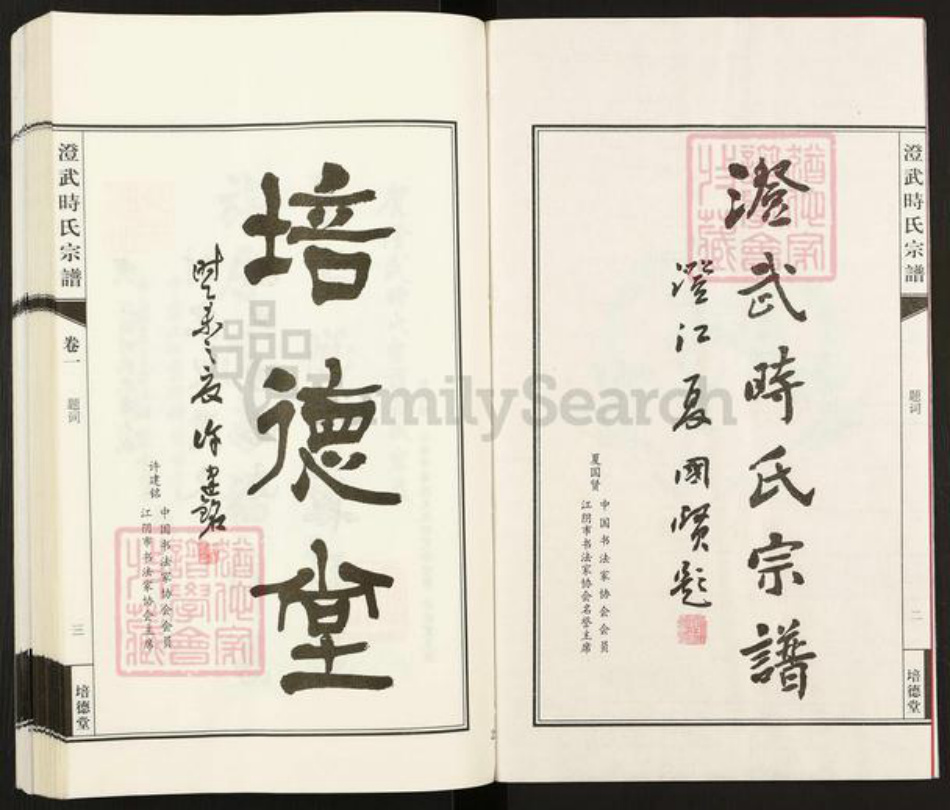 澄武時氏宗譜
题词
二
培德堂
澄武時氏宗譜
澄江夏國賢题
夏国贤
中国书法家协会会员
江阴市书法家协会名誉主席
培德堂
许建铭
中国书法家协会会员
江阴市书法家协会主席
澄武時氏宗譜
卷一
题词
三
培德堂
FamilySearch